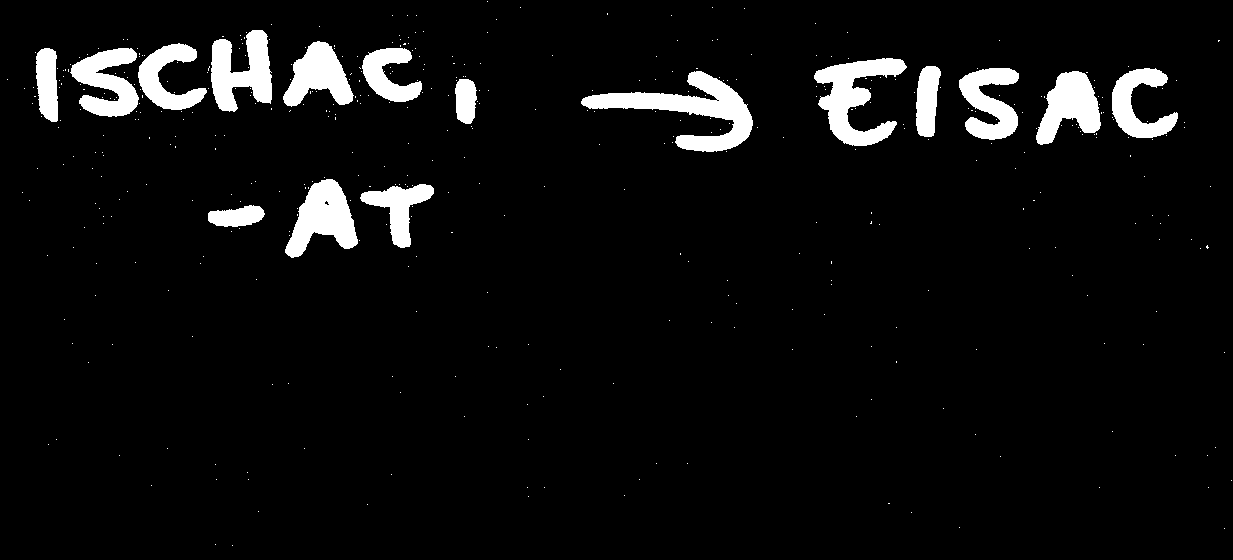 ISCHAC, → EISAC
-AT